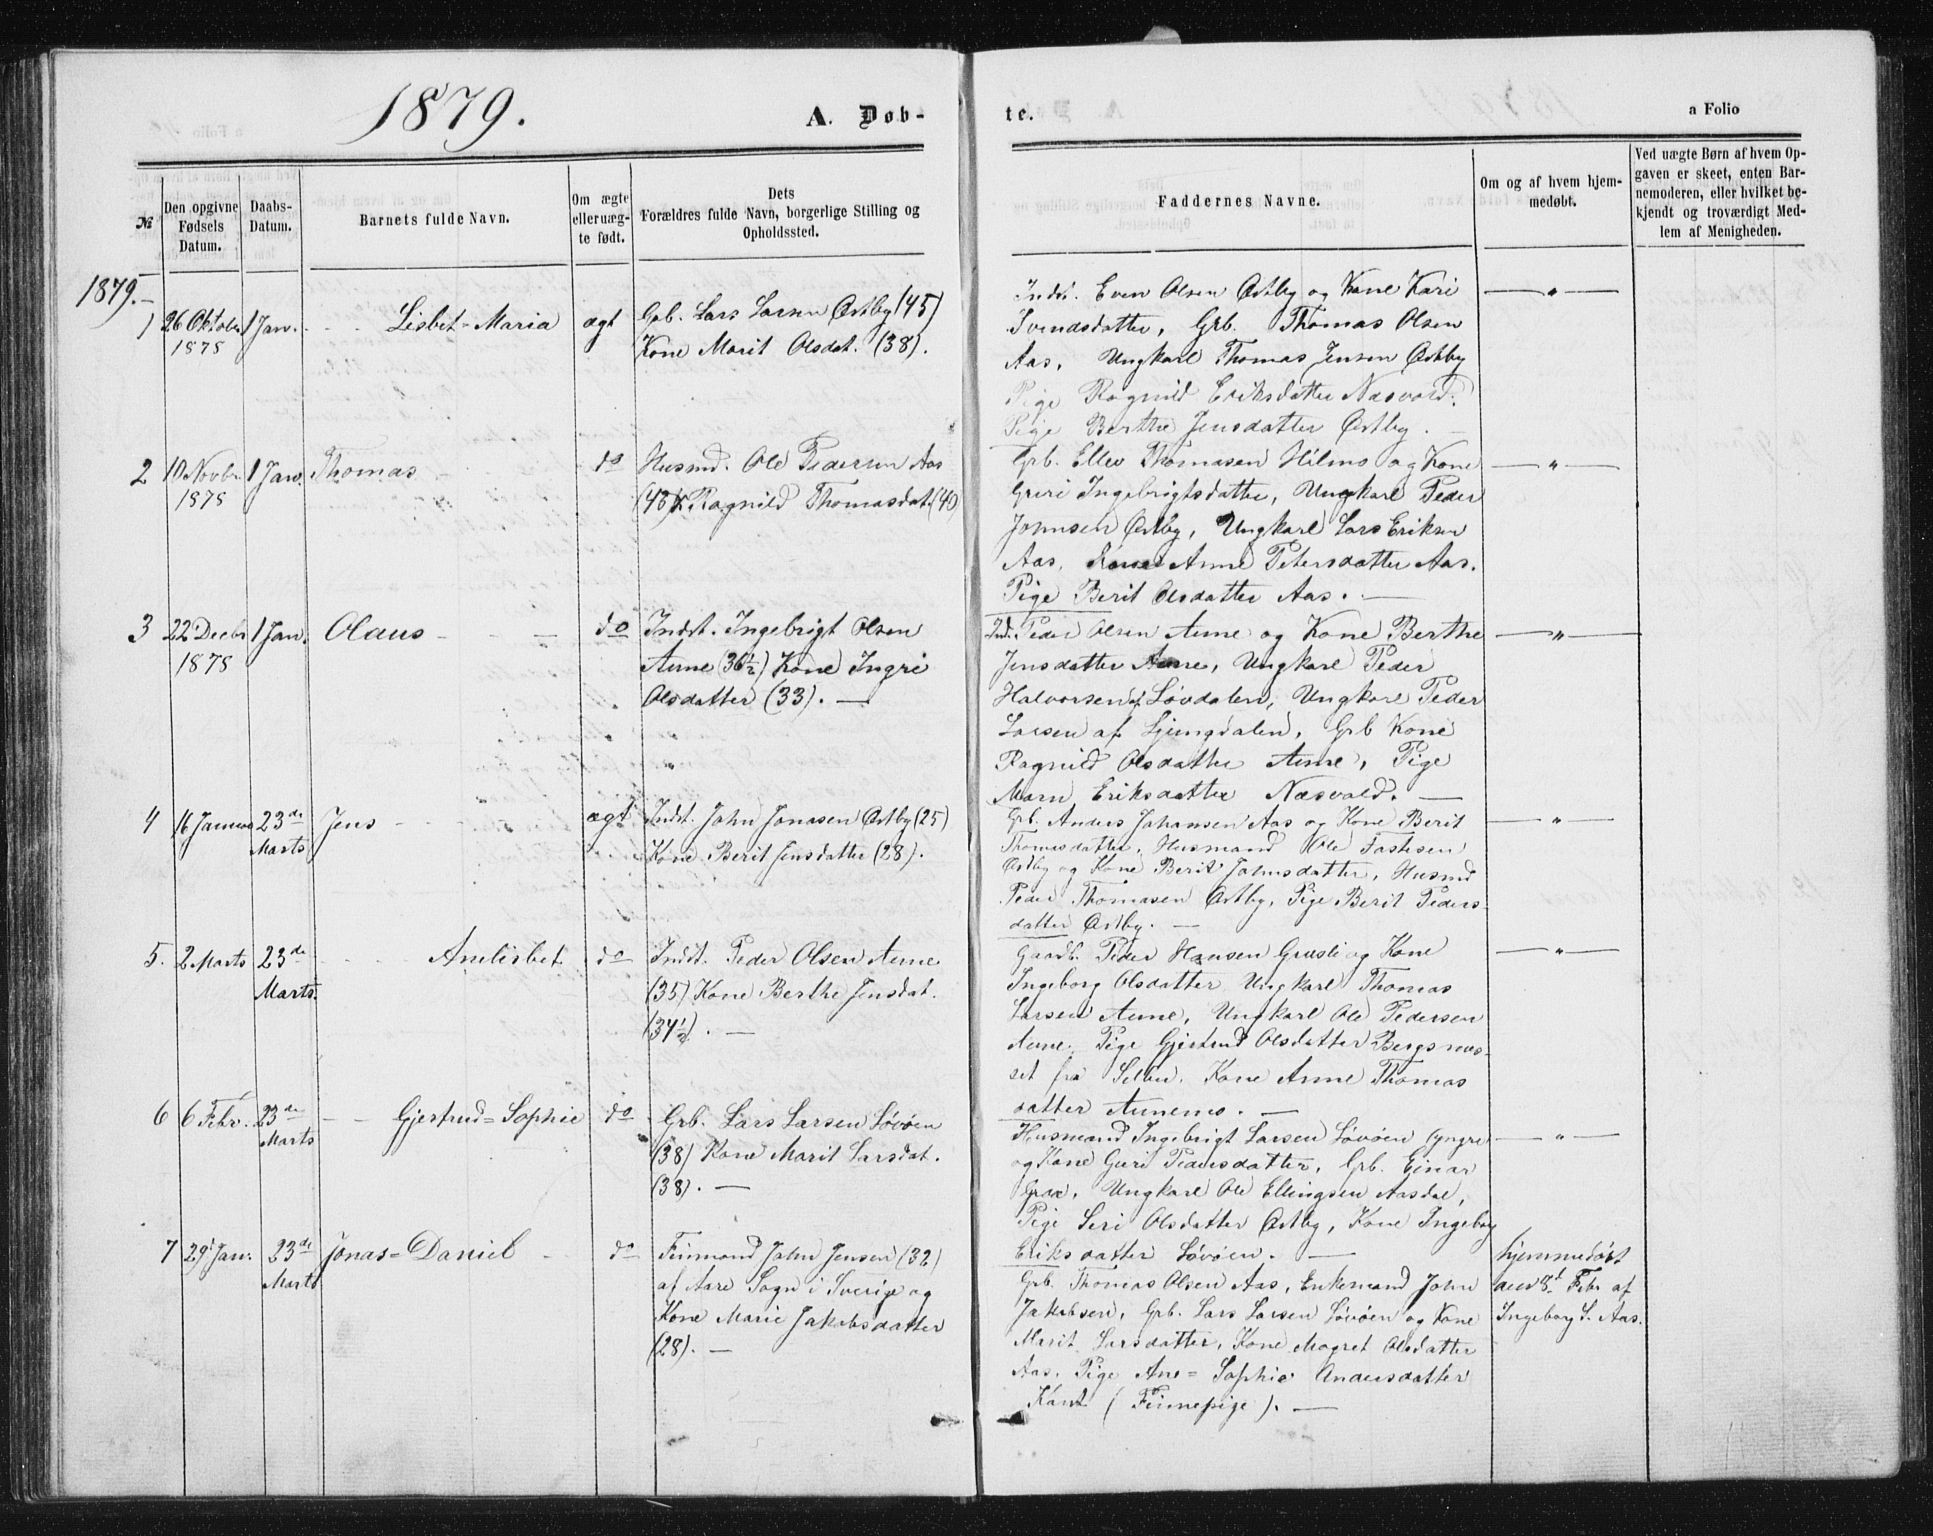 1879.
A. Døb-
te.
a Folio
№
Den opgivne
Fødsels
Datum.
Daabs-
Datum.
Barnets fulde Navn.
Om ægte
elleruæg-
te født.
Dets
Forældres fulde Navn, borgerlige Stilling og
Opholdssted.
Faddernes Navne.
Om og af hvem hjem-
medøbt.
Ved uægte Børn af hvem Op-
gaven er skeet, enten Bar-
nemoderen, eller hvilket be-
kjendt og troværdigt Med-
lem af Menigheden.
1879.
1 26 Oktober 1 Jan. Lisbet-Maria ægt Grb. Lars Larsen Østby (45)
1878 Kone Marit Olsdat. (38).
Indst. Even Olsen Østby og Kone Kari — " —
Svendsdatter, Grb. Thomas Olsen
Aas, Ungkarl Thomas Jensen Østby
Pige Ragnild Eriksdatter Næsvold.
Pige Berthe Jensdatter Østby.
2 10 Novbr 1 Jan. Thomas do Husmd. Ole Pedersen Aas
1878 (43) K. Ragnild Thomasdat. (40)
Grb. Ellev Thomasen Hilmo og Kone — " —
Guri Ingebrigtsdatter, Ungkarl Peder
Johnsen Østby, Ungkarl Lars Eriksen
Aas, Kone Anne Petersdatter Aas.
Pige Berit Olsdatter Aas. —
3 22 Decbr 1 Jan. Olaus do Indst. Ingebrigt Olsen
1878 Aune (36½) Kone Ingri
Olsdatter (33). —
Ind. Peder Olsen Aune og Kone Berthe — " —
Jensdatter Aune, Ungkarl Peder
Halvorsen af Løvdalen, Ungkarl Peder
Larsen af Ljungdalen, Grb Kone
Ragnild Olsdatter Aune, Pige
Marn Eriksdatter Næsvold. —
4 16 Januar 23de Jens ægt Indst. John Jonasen Østby (25)
Marts Kone Berit Jensdatter (28).
Grb. Anders Johansen Aas og Kone Berit — " —
Thomasdatter, Husmand Ole Fastesen
Østby og Kone Berit Johnsdatter, Husmd
Peder Thomasen Østby, Pige Berit Peders-
datter Østby. —
5. 2 Marts 23de Anelisbet do Indst. Peder Olsen Aune
Marts. (35) Kone Berthe Jensdat.
(34½). —
Gaardb. Peder Hansen Græsli og Kone — " —
Ingeborg Olsdatter, Ungkarl Thomas
Larsen Aune, Ungkarl Ole Pedersen
Aune. Pige Gjertrud Olsdatter Bergsmo-
set fra Selbu. Kone Anne Thomas
datter Aunemo. —
6 6 Febr. 23de Gjertrud=Sophie do Grb. Lars Larsen Løvøen
Marts (38) Kone Marit Larsdat.
(38). —
Husmand Ingebrigt Larsen Løvøen (yngre — " —
og Kone Guri Pedersdatter, Grb. Einar
Græe, Ungkarl Ole Ellingsen Aasdal,
Pige Seri Olsdatter Østby, Kone Ingeborg
Eriksdatter Løvøen. —
7 29 Jan. 23de Jonas=Daniel do Finmand John Jensen (32)
Marts af Aare Sogn i Sverige og
Kone Marie Jakobsdatter
(28). —
Grb. Thomas Olsen Aas, Enkemand John
Jakobsen, Grb. Lars Larsen Løvøen og Kone
Marit Larsdatter, Kone Magret Olsdatter
Aas. Pige Ane=Sophie Andersdatter
Kant (Finnepige). —
hjemmedøbt
den 3d Febr af
Ingeborg L. Aas.